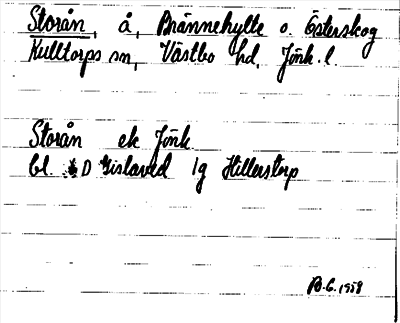 Storån, å, Brännehylte o. Österskog
Kulltorps sn, Västbo hd, Jönk. l.
Storån ek Jönk
bl. D Gislaved 1g Hillerstorp
B.G. 1958